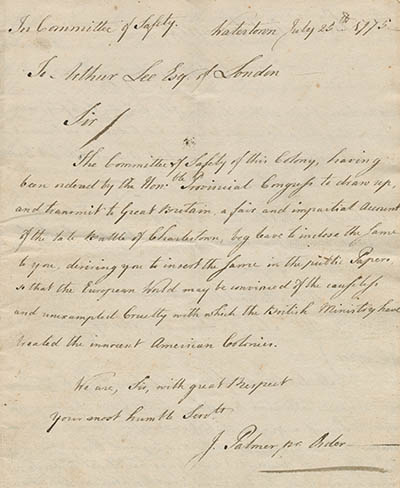 In Committee of Safety. Watertown July 25th 1775
To Arthur Lee Esq of London
Sir
The Committee of Safety of this Colony, having
been ordered by the Honble Provincial Congress to draw up,
and transmit to Great Britain, a fair and impartial Account
of the late Battle of Charlestown, beg leave to inclose the Same
to you, desiring you to insert the Same in the public Papers
so that the European World may be convinced of the causeless
and unexampled Cruelty with which the British Ministry have
treated the innocent American Colonies.
We are, Sir, with great Respect
Your most humble Servts
J. Palmer pr. Order